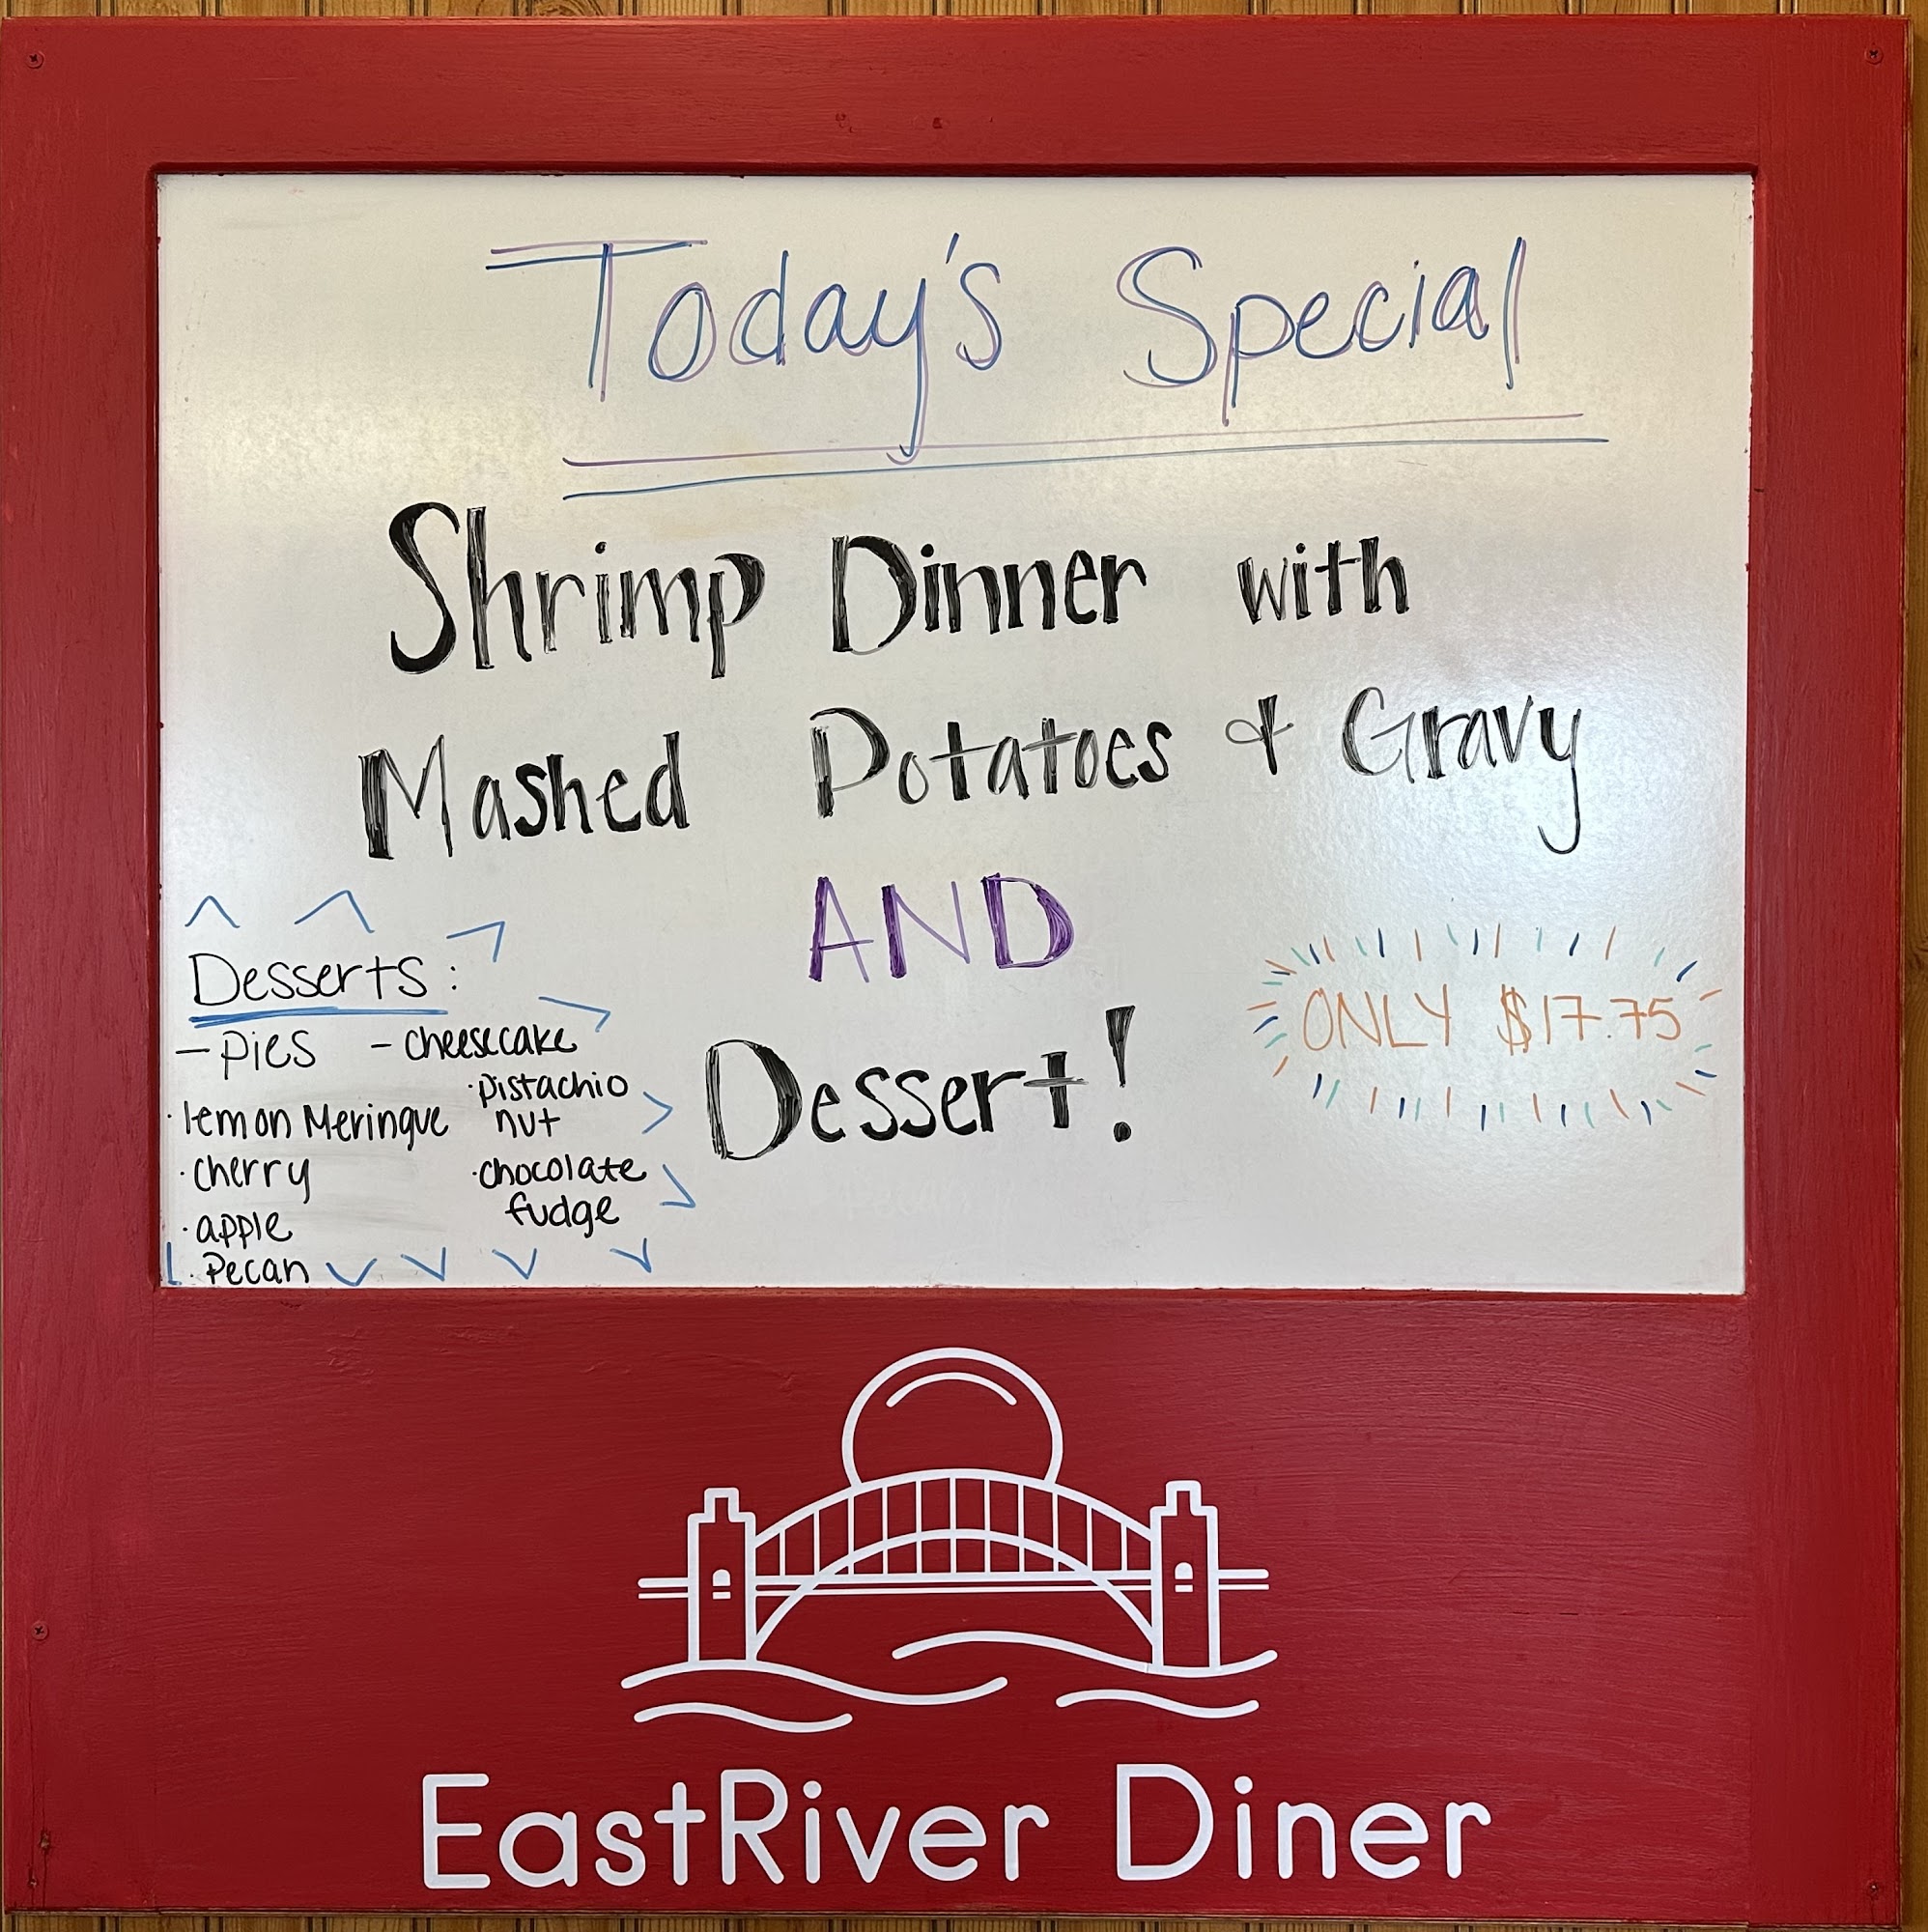 Today's Special
Shrimp Dinner with
Mashed Potatoes & Gravy
AND
Dessert!
ONLY $17.75
Desserts:
- Pies
· lemon Meringue
· cherry
· apple
· Pecan
- cheesecake
· pistachio
nut
· chocolate
fudge
EastRiver Diner